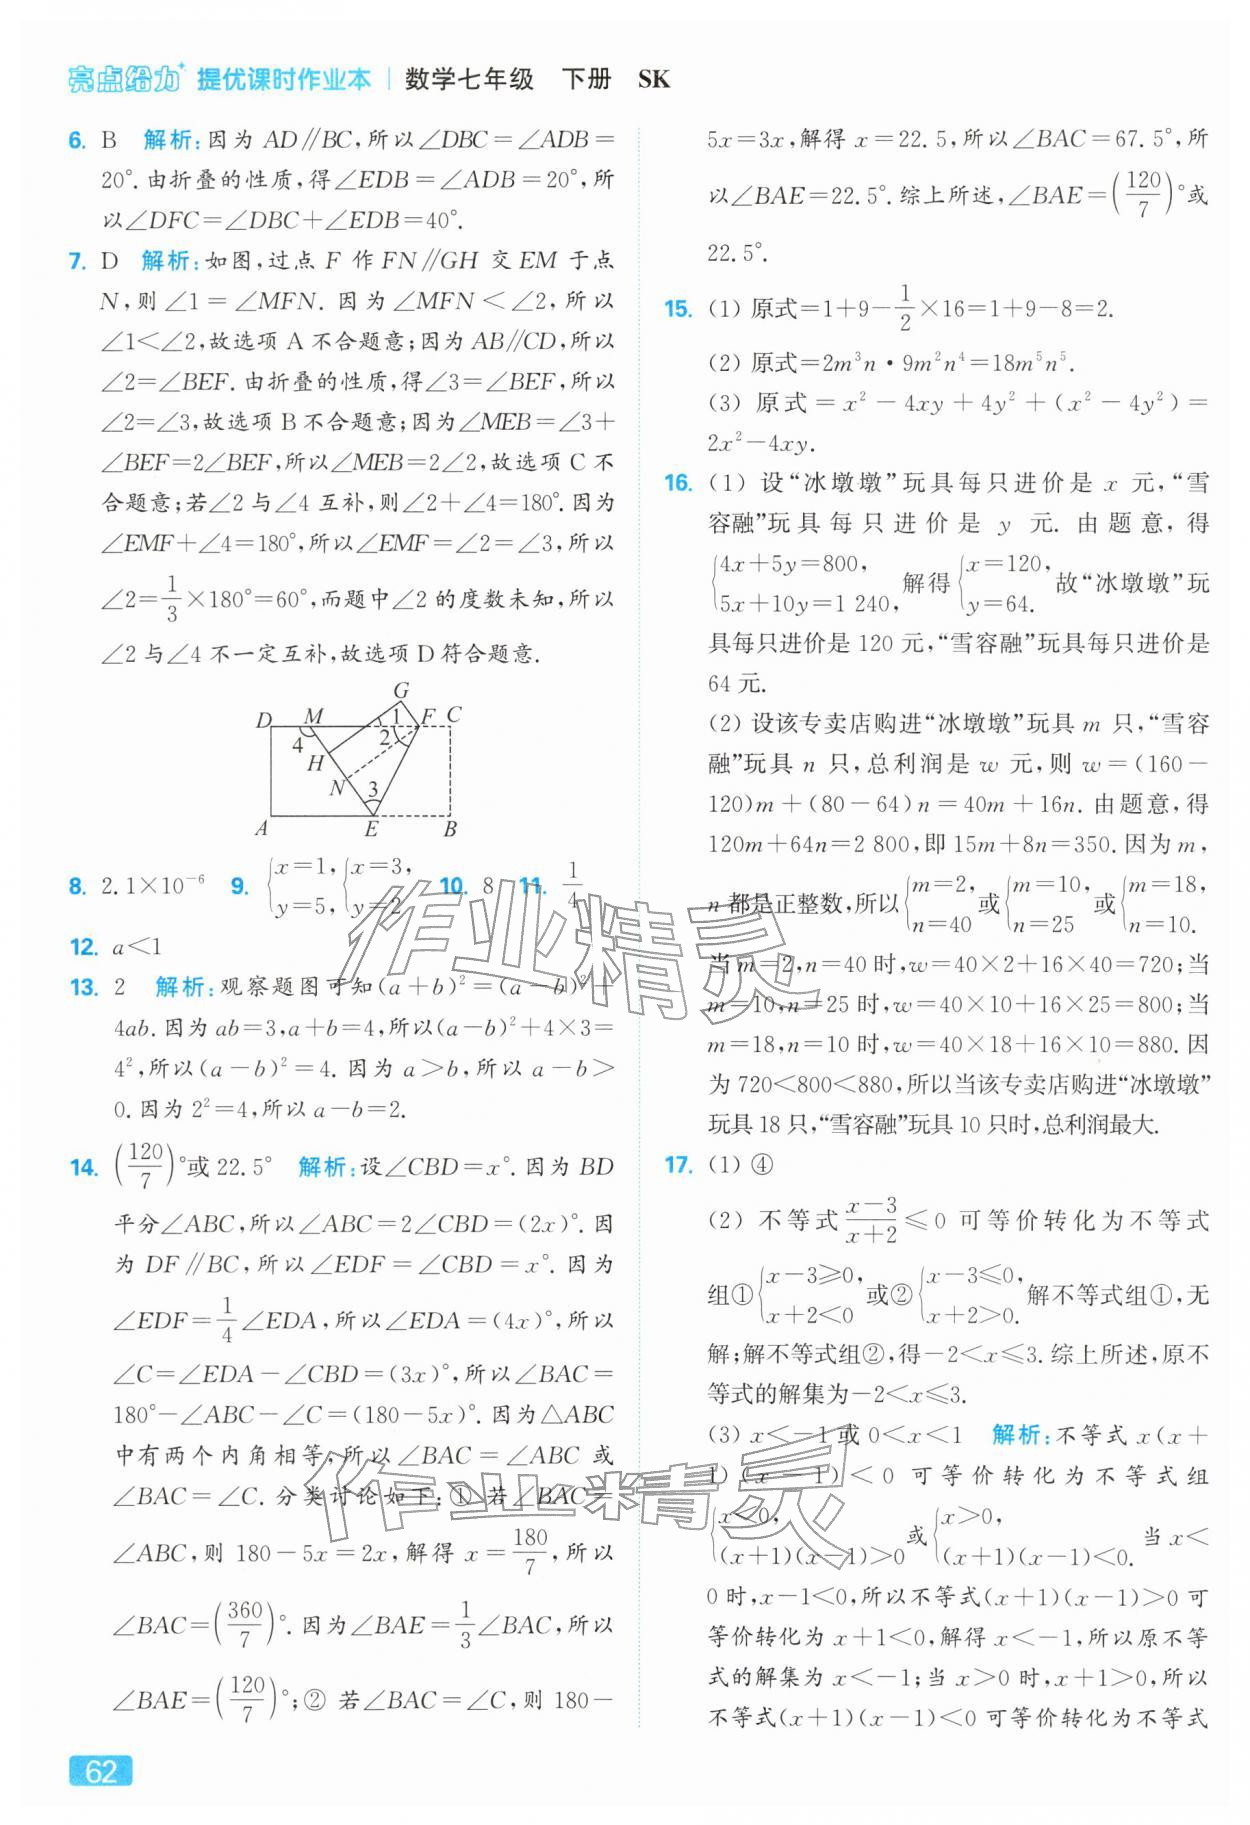 亮点给力 提优课时作业本 | 数学七年级 下册 SK
6. B 解析:因为 AD∥BC,所以∠DBC=∠ADB=
20°.由折叠的性质,得∠EDB=∠ADB=20°,所
以∠DFC=∠DBC+∠EDB=40°.
7. D 解析:如图,过点 F 作 FN∥GH 交 EM 于点
N,则∠1=∠MFN. 因为∠MFN<∠2,所以
∠1<∠2,故选项 A 不合题意;因为 AB∥CD,所以
∠2=∠BEF.由折叠的性质,得∠3=∠BEF,所以
∠2=∠3,故选项 B 不合题意;因为∠MEB=∠3+
∠BEF=2∠BEF,所以∠MEB=2∠2,故选项 C 不
合题意;若∠2与∠4 互补,则∠2+∠4=180°.因为
∠EMF+∠4=180°,所以∠EMF=∠2=∠3,所以
∠2=1/3×180°=60°,而题中∠2 的度数未知,所以
∠2与∠4 不一定互补,故选项 D 符合题意.
G
D M 1 F C
4 2
H
N 3
A E B
8. 2.1×10⁻⁶ 9. {x=1, y=5, {x=3, y=2 10. 8 11. 1/4
12. a<1
13. 2 解析:观察题图可知(a+b)²=(a-b)²+
4ab.因为 ab=3,a+b=4,所以(a-b)²+4×3=
4²,所以(a-b)²=4. 因为 a>b,所以 a-b>
0.因为 2²=4,所以 a-b=2.
14. (120/7)°或 22.5° 解析:设∠CBD=x°.因为 BD
平分∠ABC,所以∠ABC=2∠CBD=(2x)°. 因
为 DF∥BC,所以∠EDF=∠CBD=x°. 因为
∠EDF=1/4∠EDA,所以∠EDA=(4x)°,所以
∠C=∠EDA-∠CBD=(3x)°,所以∠BAC=
180°-∠ABC-∠C=(180-5x)°.因为△ABC
中有两个内角相等,所以∠BAC=∠ABC 或
∠BAC=∠C.分类讨论如下:① 若∠BAC=
∠ABC,则 180-5x=2x,解得 x=180/7,所以
∠BAC=(360/7)°.因为∠BAE=1/3∠BAC,所以
∠BAE=(120/7)°;② 若∠BAC=∠C,则 180-
5x=3x,解得 x=22.5,所以∠BAC=67.5°,所
以∠BAE=22.5°.综上所述,∠BAE=(120/7)°或
22.5°.
15. (1) 原式=1+9-1/2×16=1+9-8=2.
(2) 原式=2m³n·9m²n⁴=18m⁵n⁵.
(3) 原式=x²-4xy+4y²+(x²-4y²)=
2x²-4xy.
16. (1) 设“冰墩墩”玩具每只进价是 x 元,“雪
容融”玩具每只进价是 y 元. 由题意,得
{4x+5y=800, 5x+10y=1 240, 解得 {x=120, y=64. 故“冰墩墩”玩
具每只进价是 120 元,“雪容融”玩具每只进价是
64 元.
(2) 设该专卖店购进“冰墩墩”玩具 m 只,“雪容
融”玩具 n 只,总利润是 w 元,则 w=(160-
120)m+(80-64)n=40m+16n. 由题意,得
120m+64n=2 800,即 15m+8n=350.因为 m,
n 都是正整数,所以{m=2, n=40 或{m=10, n=25 或{m=18, n=10.
当 m=2,n=40 时,w=40×2+16×40=720;当
m=10,n=25 时,w=40×10+16×25=800;当
m=18,n=10 时,w=40×18+16×10=880. 因
为 720<800<880,所以当该专卖店购进“冰墩墩”
玩具 18 只,“雪容融”玩具 10 只时,总利润最大.
17. (1) ④
(2) 不等式(x-3)/(x+2)≤0 可等价转化为不等式
组①{x-3≥0, x+2<0 或②{x-3≤0, x+2>0. 解不等式组①,无
解;解不等式组②,得-2<x≤3.综上所述,原不
等式的解集为-2<x≤3.
(3) x<-1 或 0<x<1 解析:不等式 x(x+
1)(x-1)<0 可等价转化为不等式组
{x<0, (x+1)(x-1)>0 或{x>0, (x+1)(x-1)<0. 当 x<
0 时,x-1<0,所以不等式(x+1)(x-1)>0 可
等价转化为 x+1<0,解得 x<-1,所以原不等
式的解集为 x<-1;当 x>0 时,x+1>0,所以
不等式(x+1)(x-1)<0 可等价转化为不等式
62
作业精灵
作业精灵